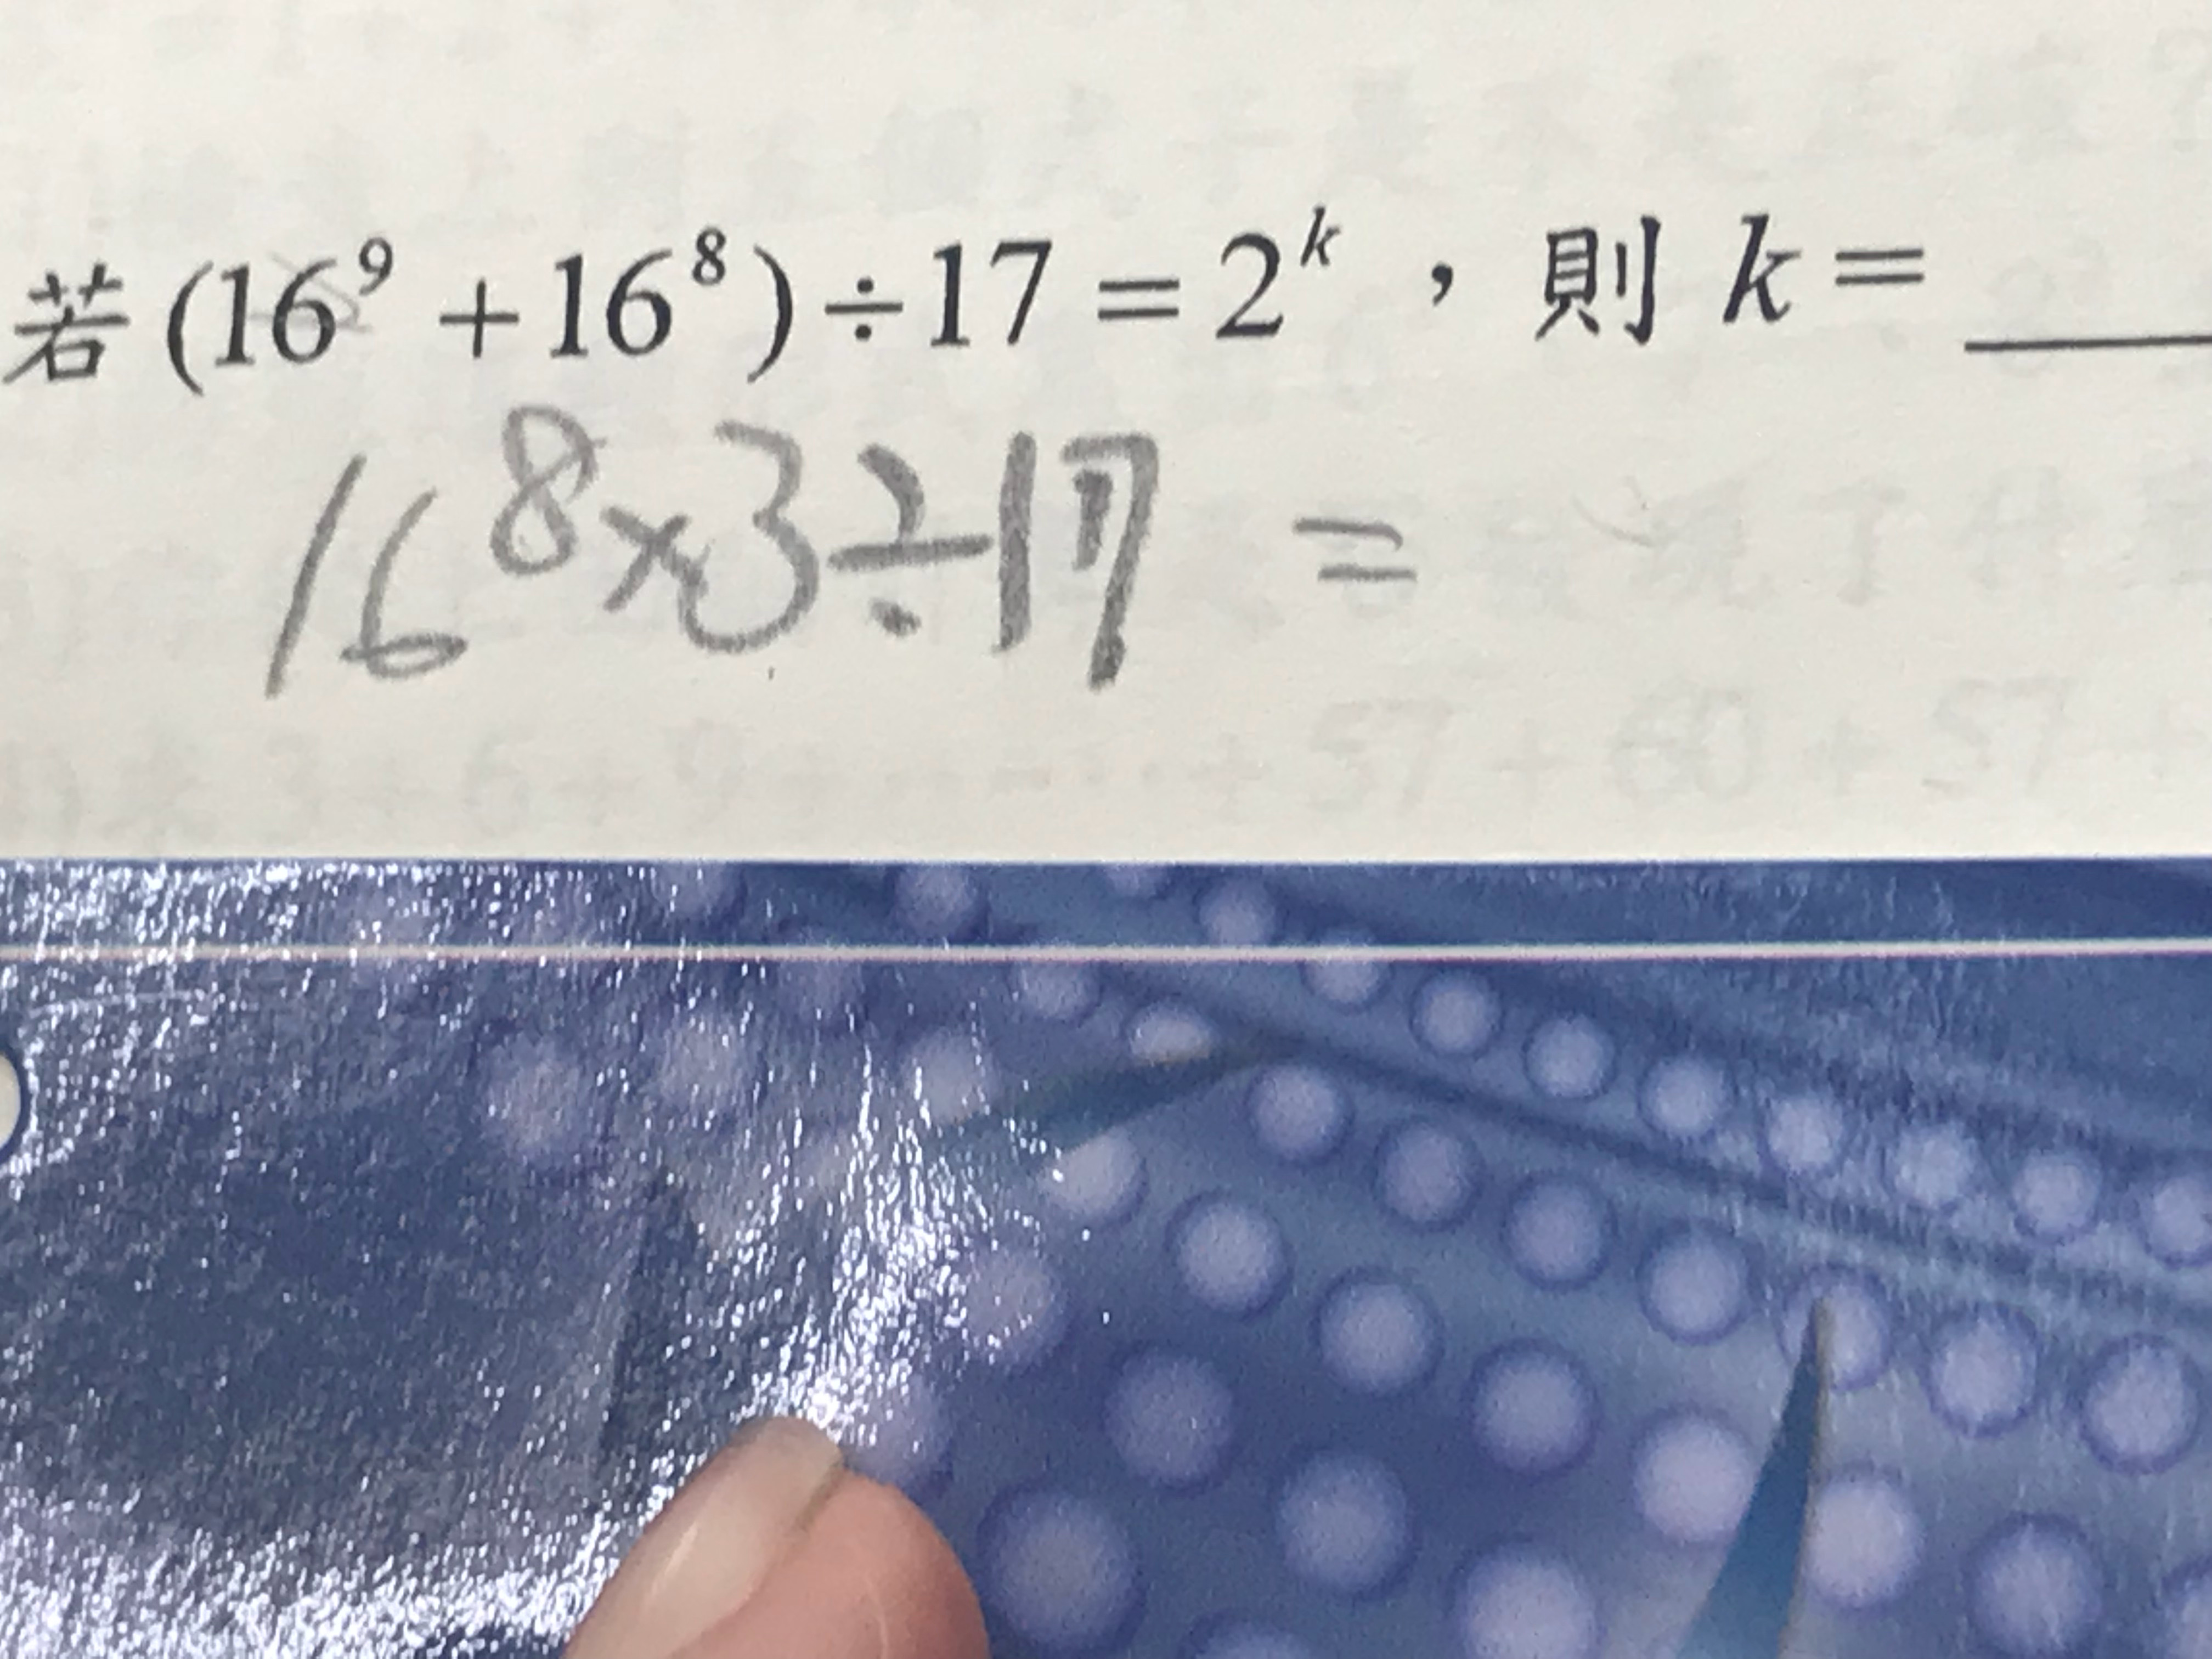 若(16⁹+16⁸)÷17=2ᵏ，則 k=____
16⁸×3÷17 =